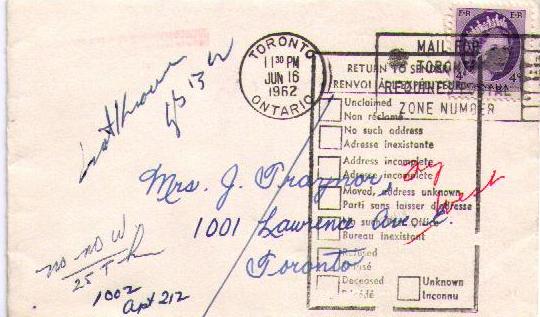 TORONTO
11 30 PM
JUN 16
1962
ONTARIO
MAIL FOR
TORONTO
REQUIRES POSTAL
ZONE NUMBER
E·R E·R
4¢ 4¢
CANADA
RETURN TO SENDER
RENVOI À L'EXPÉDITEUR
Unclaimed
Non réclamé
No such address
Adresse inexistante
Address incomplete
Adresse incomplète
Moved, address unknown
Parti sans laisser d'adresse
No such Post Office
Bureau inexistant
Refused
Refusé
Deceased
Décédé
Unknown
Inconnu
Not Known W
Mrs. J. Traynor,
1001 Lawrence Ave. E.
Toronto
try West
no no W
25
1002
Apt 212